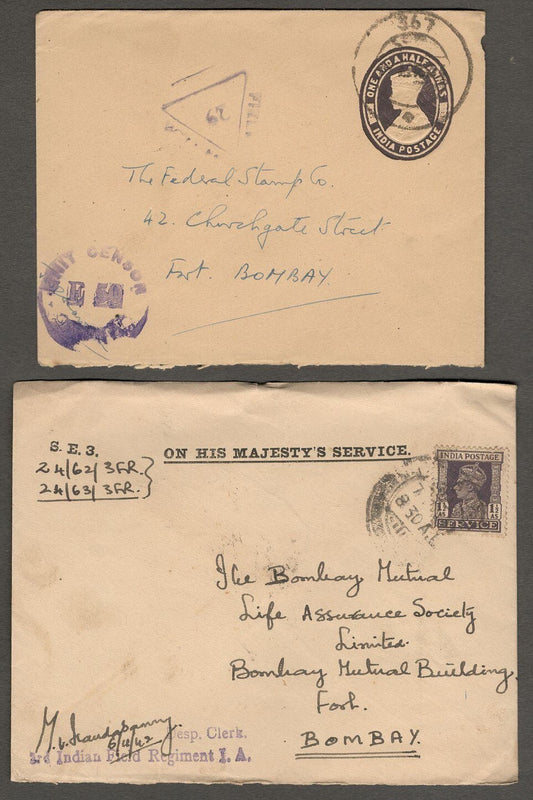 367
ONE AND A HALF ANNAS
INDIA POSTAGE
29
The Federal Stamp Co.
42. Churchgate Street
Fort. BOMBAY.
UNIT CENSOR
E
S. E. 3.
24/62/3FR.
24/63/3FR.
ON HIS MAJESTY'S SERVICE.
INDIA POSTAGE
1½ AS
1½ AS
SERVICE
8 30 A.
The Bombay Mutual
Life Assurance Society
Limited.
Bombay Mutual Building,
Fort.
BOMBAY.
Desp. Clerk.
3rd Indian Field Regiment I. A.